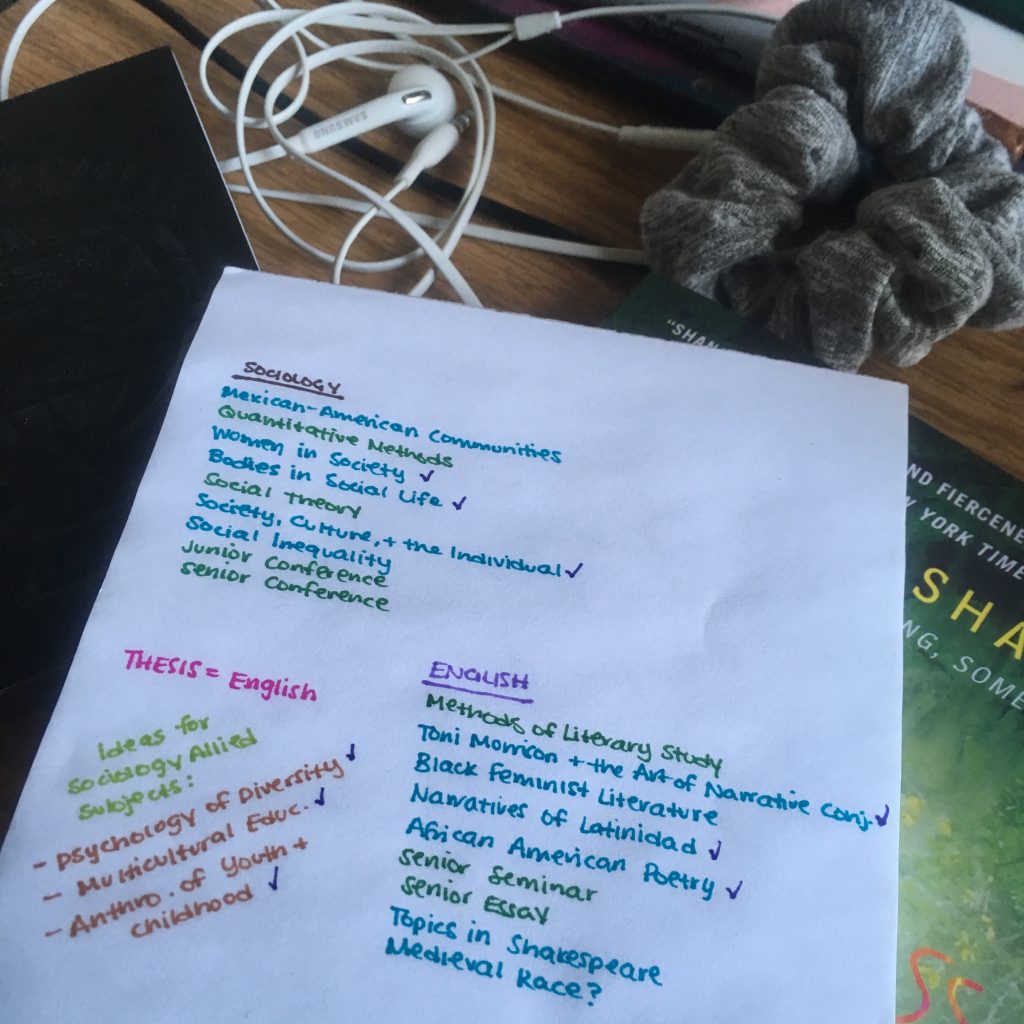 SAMSUNG
"SHAN
SOCIOLOGY
Mexican-American Communities
Quantitative Methods
Women in Society ✓
Bodies in Social Life ✓
Social Theory
Society, Culture, + the Individual ✓
Social Inequality
Junior Conference
Senior Conference
THESIS = English
Ideas for
Sociology Allied
Subjects:
- Psychology of Diversity ✓
- Multicultural Educ. ✓
- Anthro. of Youth +
childhood ✓
ENGLISH
Methods of Literary Study
Toni Morrison + the Art of Narrative Conj. ✓
Black Feminist Literature
Narratives of Latinidad ✓
African American Poetry ✓
Senior Seminar
Senior Essay
Topics in Shakespeare
Medieval Race?
ND FIERCENE
YORK TIME
SHA
NG, SOME